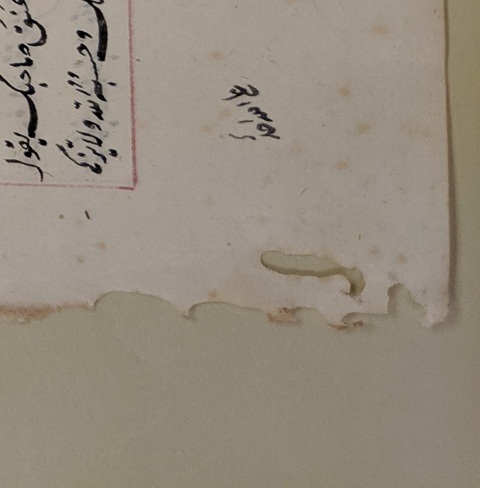 عنق صاحبك يقول
وحسبه الله ولا يزكي
على الله احدا